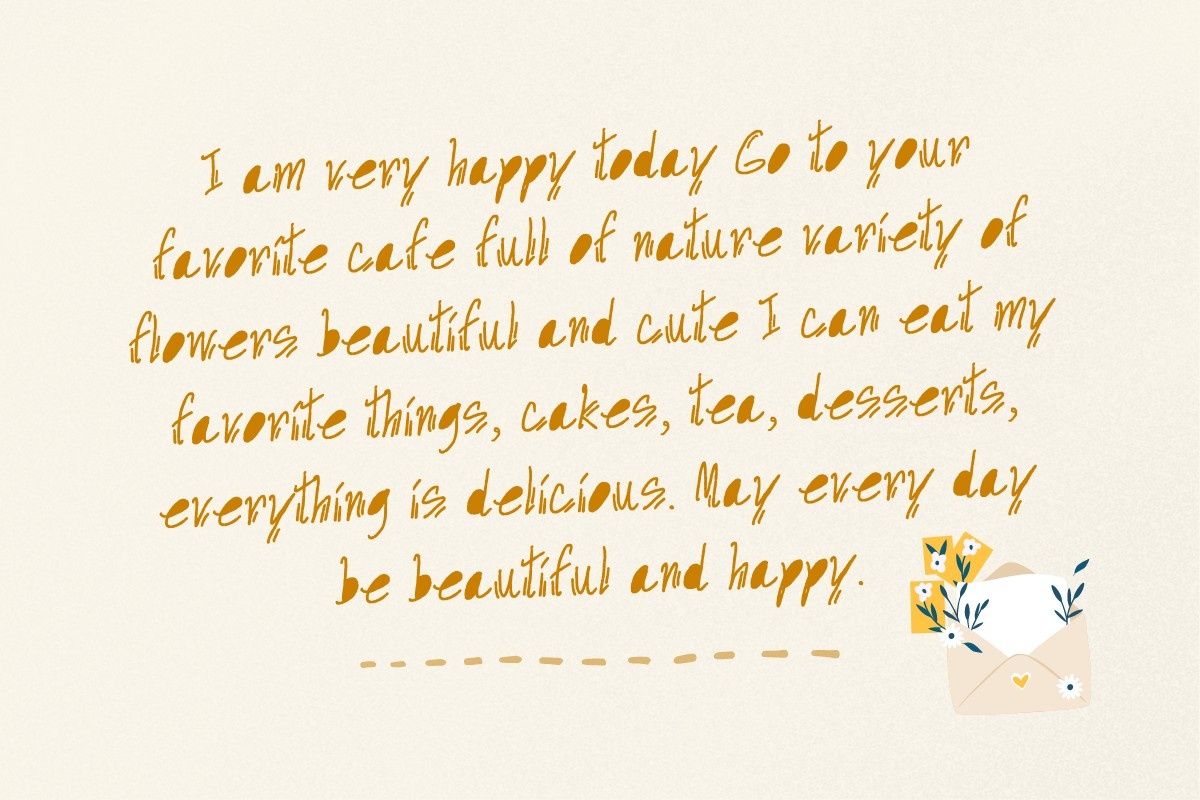 I am very happy today Go to your
favorite cafe full of nature variety of
flowers beautiful and cute I can eat my
favorite things, cakes, tea, desserts,
everything is delicious. May every day
be beautiful and happy.